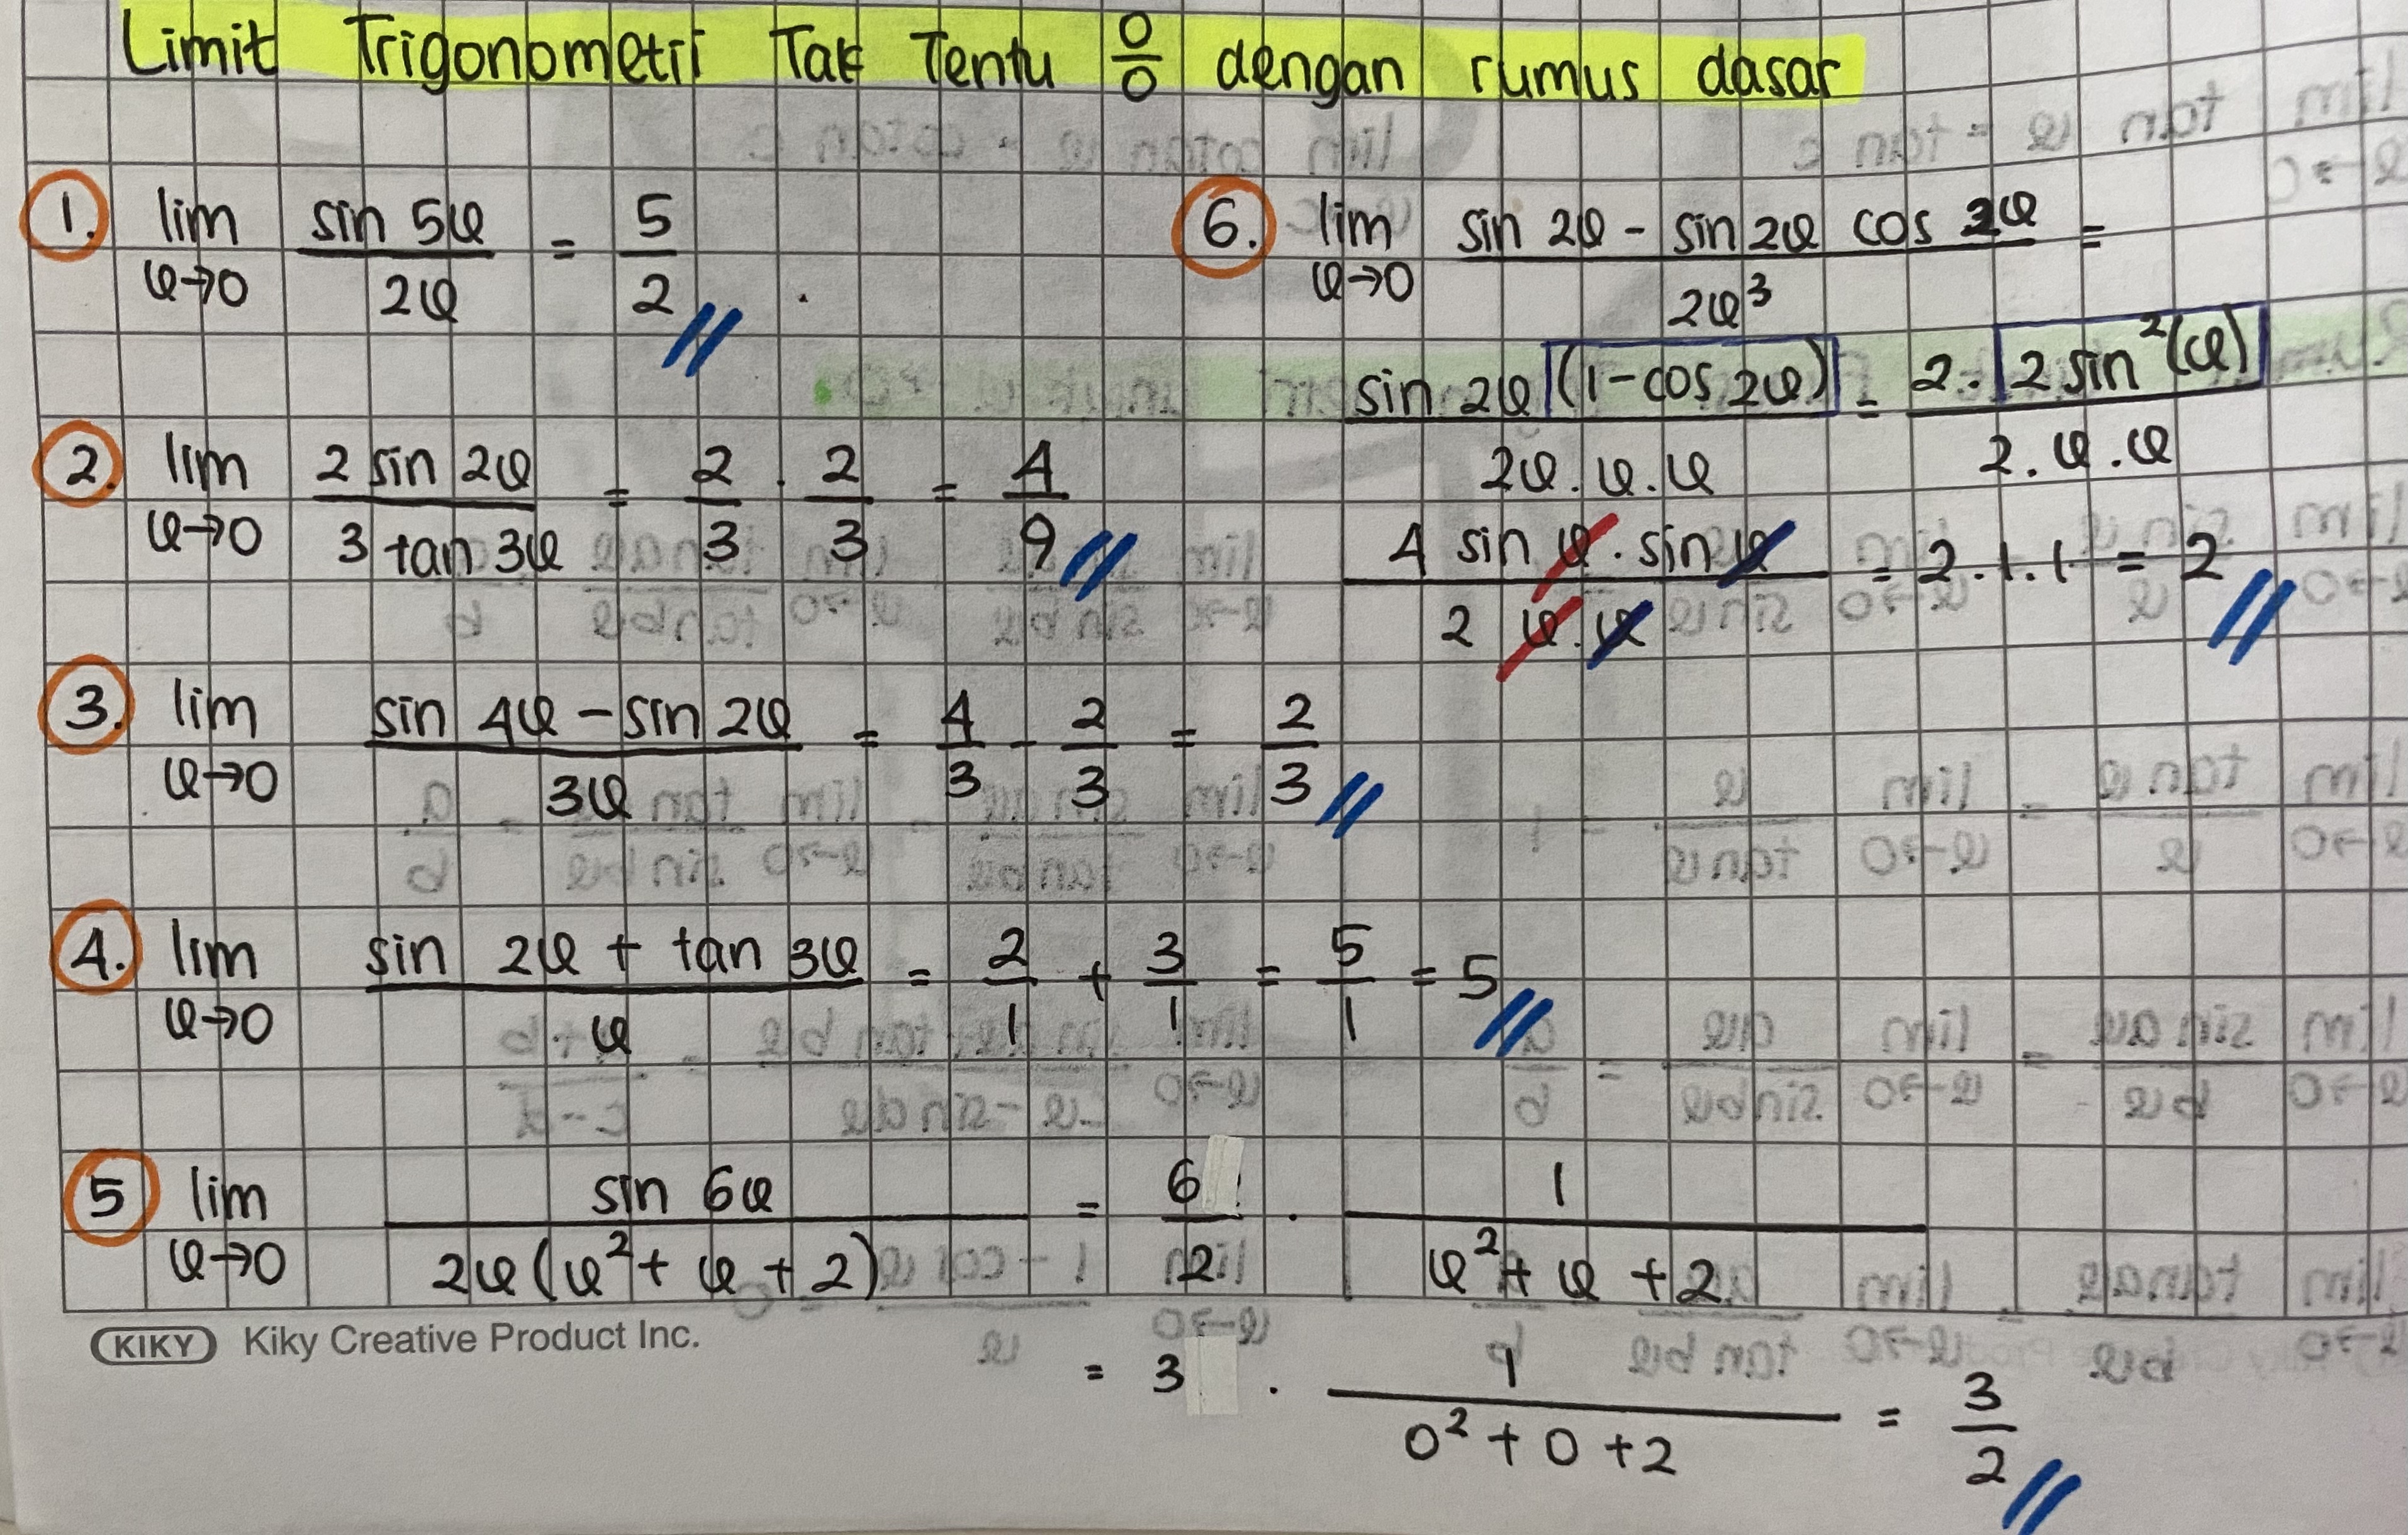 Limit Trigonometri Tak Tentu 0/0 dengan rumus dasar
1. lim x→0 sin 5x / 2x = 5/2
2. lim x→0 2 sin 2x / 3 tan 3x = 2/3 · 2/3 = 4/9
3. lim x→0 sin 4x - sin 2x / 3x = 4/3 - 2/3 = 2/3
4. lim x→0 sin 2x + tan 3x / x = 2/1 + 3/1 = 5/1 = 5
5 lim x→0 sin 6x / 2x(x² + x + 2) = 6/2 · 1 / x² + x + 2
= 3 · 1 / 0² + 0 + 2 = 3/2
6. lim x→0 sin 2x - sin 2x cos 2x / 2x³ =
sin 2x (1 - cos 2x) / 2x . x . x = 2 . 2 sin²(x) / 2 . x . x
4 sin x . sin x / 2 x . x = 2 . 1 . 1 = 2
KIKY Kiky Creative Product Inc.